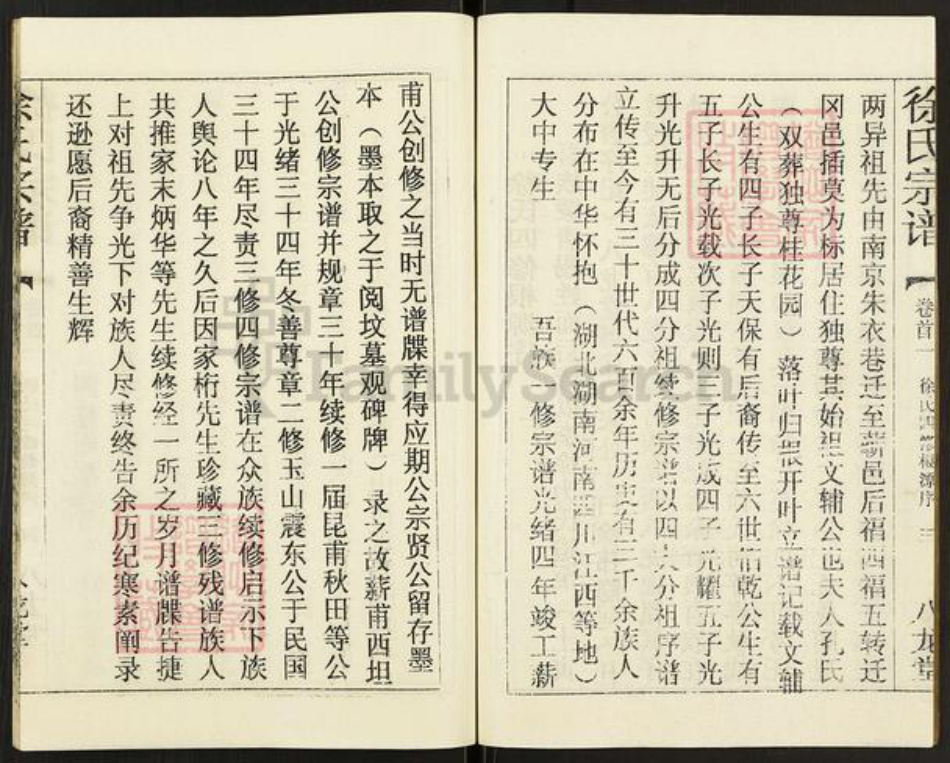 徐氏宗谱
卷首一
八龙堂
两异祖先由南京朱衣巷迁至蕲邑后福西福五转迁
冈邑插草为标居住独尊其始祖文辅公也夫人孔氏
（双葬独尊桂花园）落叶归根开叶立谱记载文辅
公生有四子长子天保有后裔传至六世信乾公生有
五子长子光载次子光则三子光成四子光耀五子光
升光升无后分成四分祖续修宗谱以四大分祖序谱
立传至今有三十世代六百余年历史有三千余族人
分布在中华怀抱（湖北湖南河南四川江西等地）
大中专生　吾族一修宗谱光绪四年竣工薪
甫公创修之当时无谱牒幸得应期公宗贤公留存墨
本（墨本取之于阅坟墓观碑牌）录之故薪甫西坦
公创修宗谱并规章三十年续修一届昆甫秋田等公
于光绪三十四年冬善尊章二修玉山震东公于民国
三十四年尽责三修四修宗谱在众族续修启示下族
人舆论八年之久后因家桁先生珍藏三修残谱族人
共推家末炳华等先生续修经一所之岁月谱牒告捷
上对祖先争光下对族人尽责终告余历纪寒素阐录
还逊愿后裔精善生辉
FamilySearch